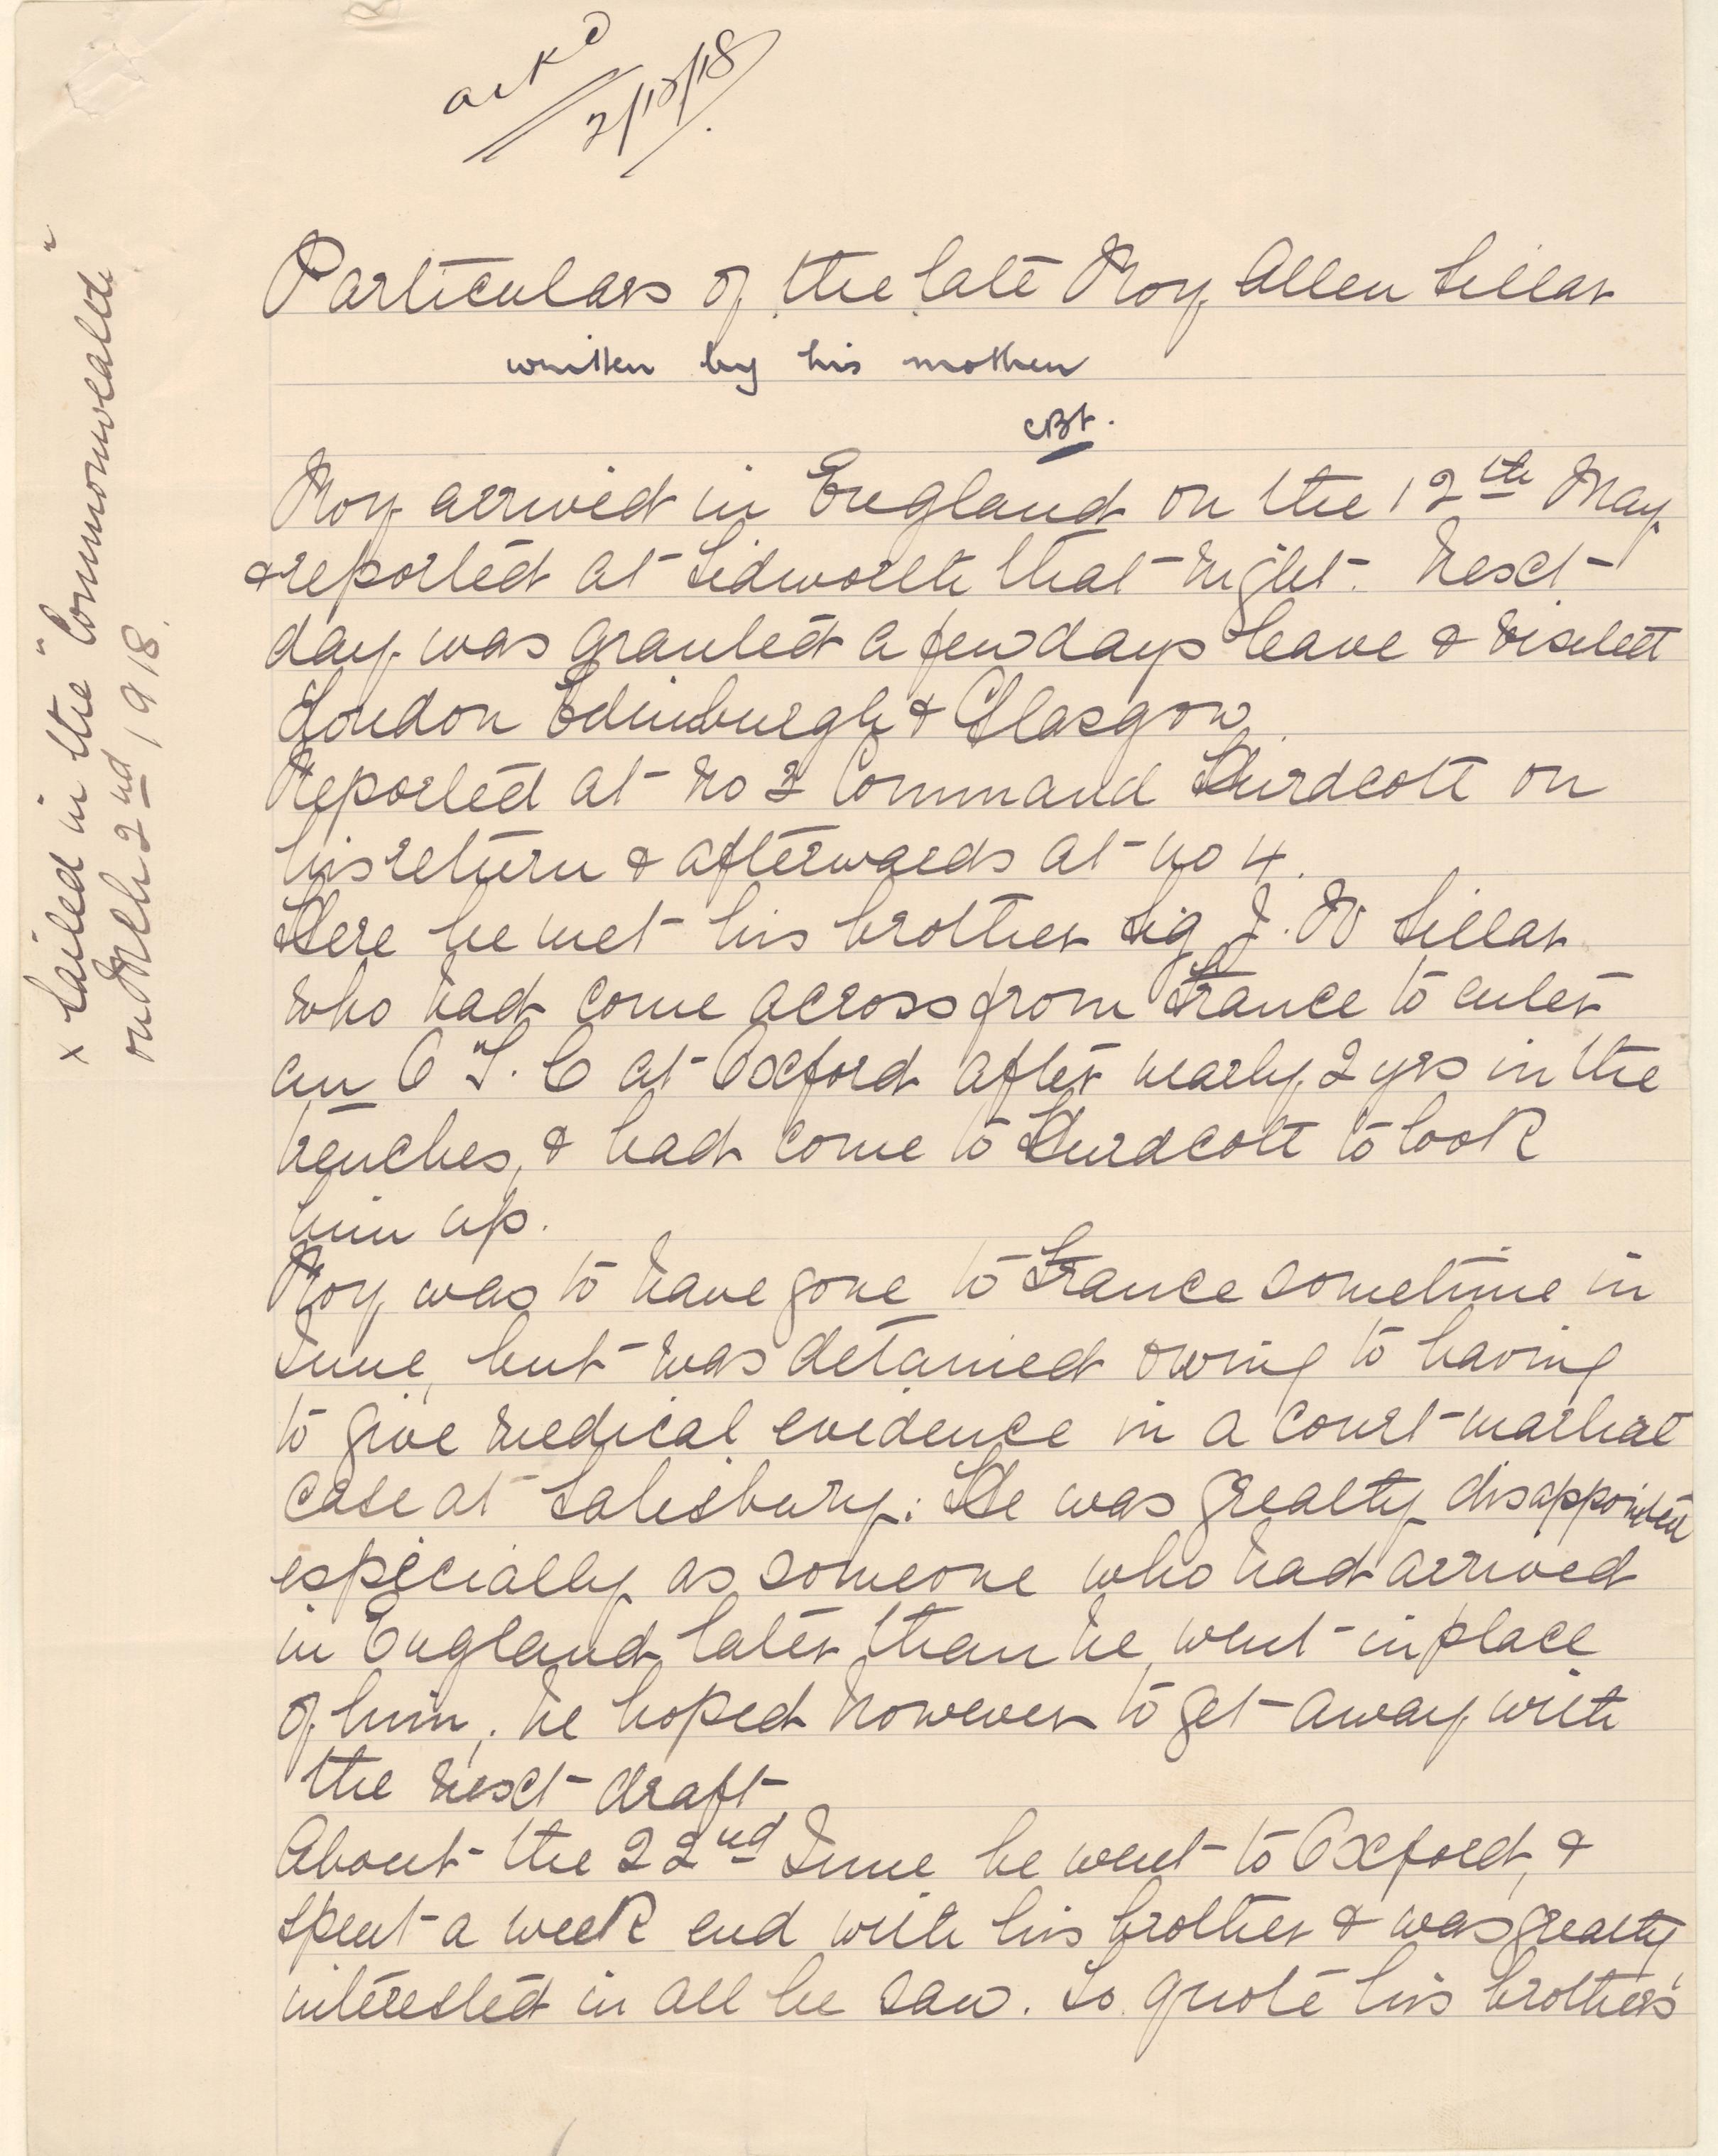 ackd
2/12/18.
Particulars of the late Roy Allen Sillar
written by his mother
CBt.
Roy arrived in England on the 12th May
& reported at Tidworth that night. Next
day was granted a few days leave & visited
London Edinburgh & Glasgow
Reported at No 3 Command Hurdcott on
his return & afterwards at no 4.
Here he met his brother Sig J. W Sillar
who had come across from France to enter
an O T. C at Oxford after nearly 2 yrs in the
trenches, & had come to Hurdcott to look
him up.
Roy was to have gone to France sometime in
June, but was detained owing to having
to give medical evidence in a court-martial
case at Salisbury: He was greatly disappointed
especially as someone who had arrived
in England later than he, went in place
of him; he hoped however to get away with
the next draft
About the 22nd June he went to Oxford, &
spent a week end with his brother & was greatly
interested in all he saw. To quote his brother's
x Sailed in the "Commonwealth"
on Mch 2nd 1918.